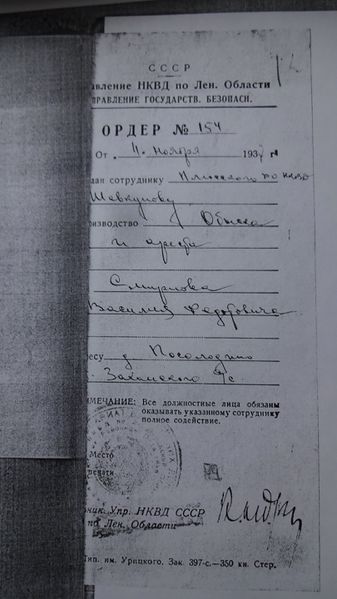 СССР
авление НКВД по Лен. Области
ПРАВЛЕНИЕ ГОСУДАРСТВ. БЕЗОПАСН.
ОРДЕР № 154
От „ 11 „ ноября 193 г.
дан сотруднику РО НКВД
Шевкунову
оизводство Обыска
и ареста
Смирнова
Василия Федотовича
есу д. Посолодино
с/с
МЕЧАНИЕ: Все должностные лица обязаны
оказывать указанному сотруднику
полное содействие.
Место
печати
ьник. Упр. НКВД СССР
по Лен. Области
Тип. им. Урицкого. Зак. 397-с.—350 кн. Стер.